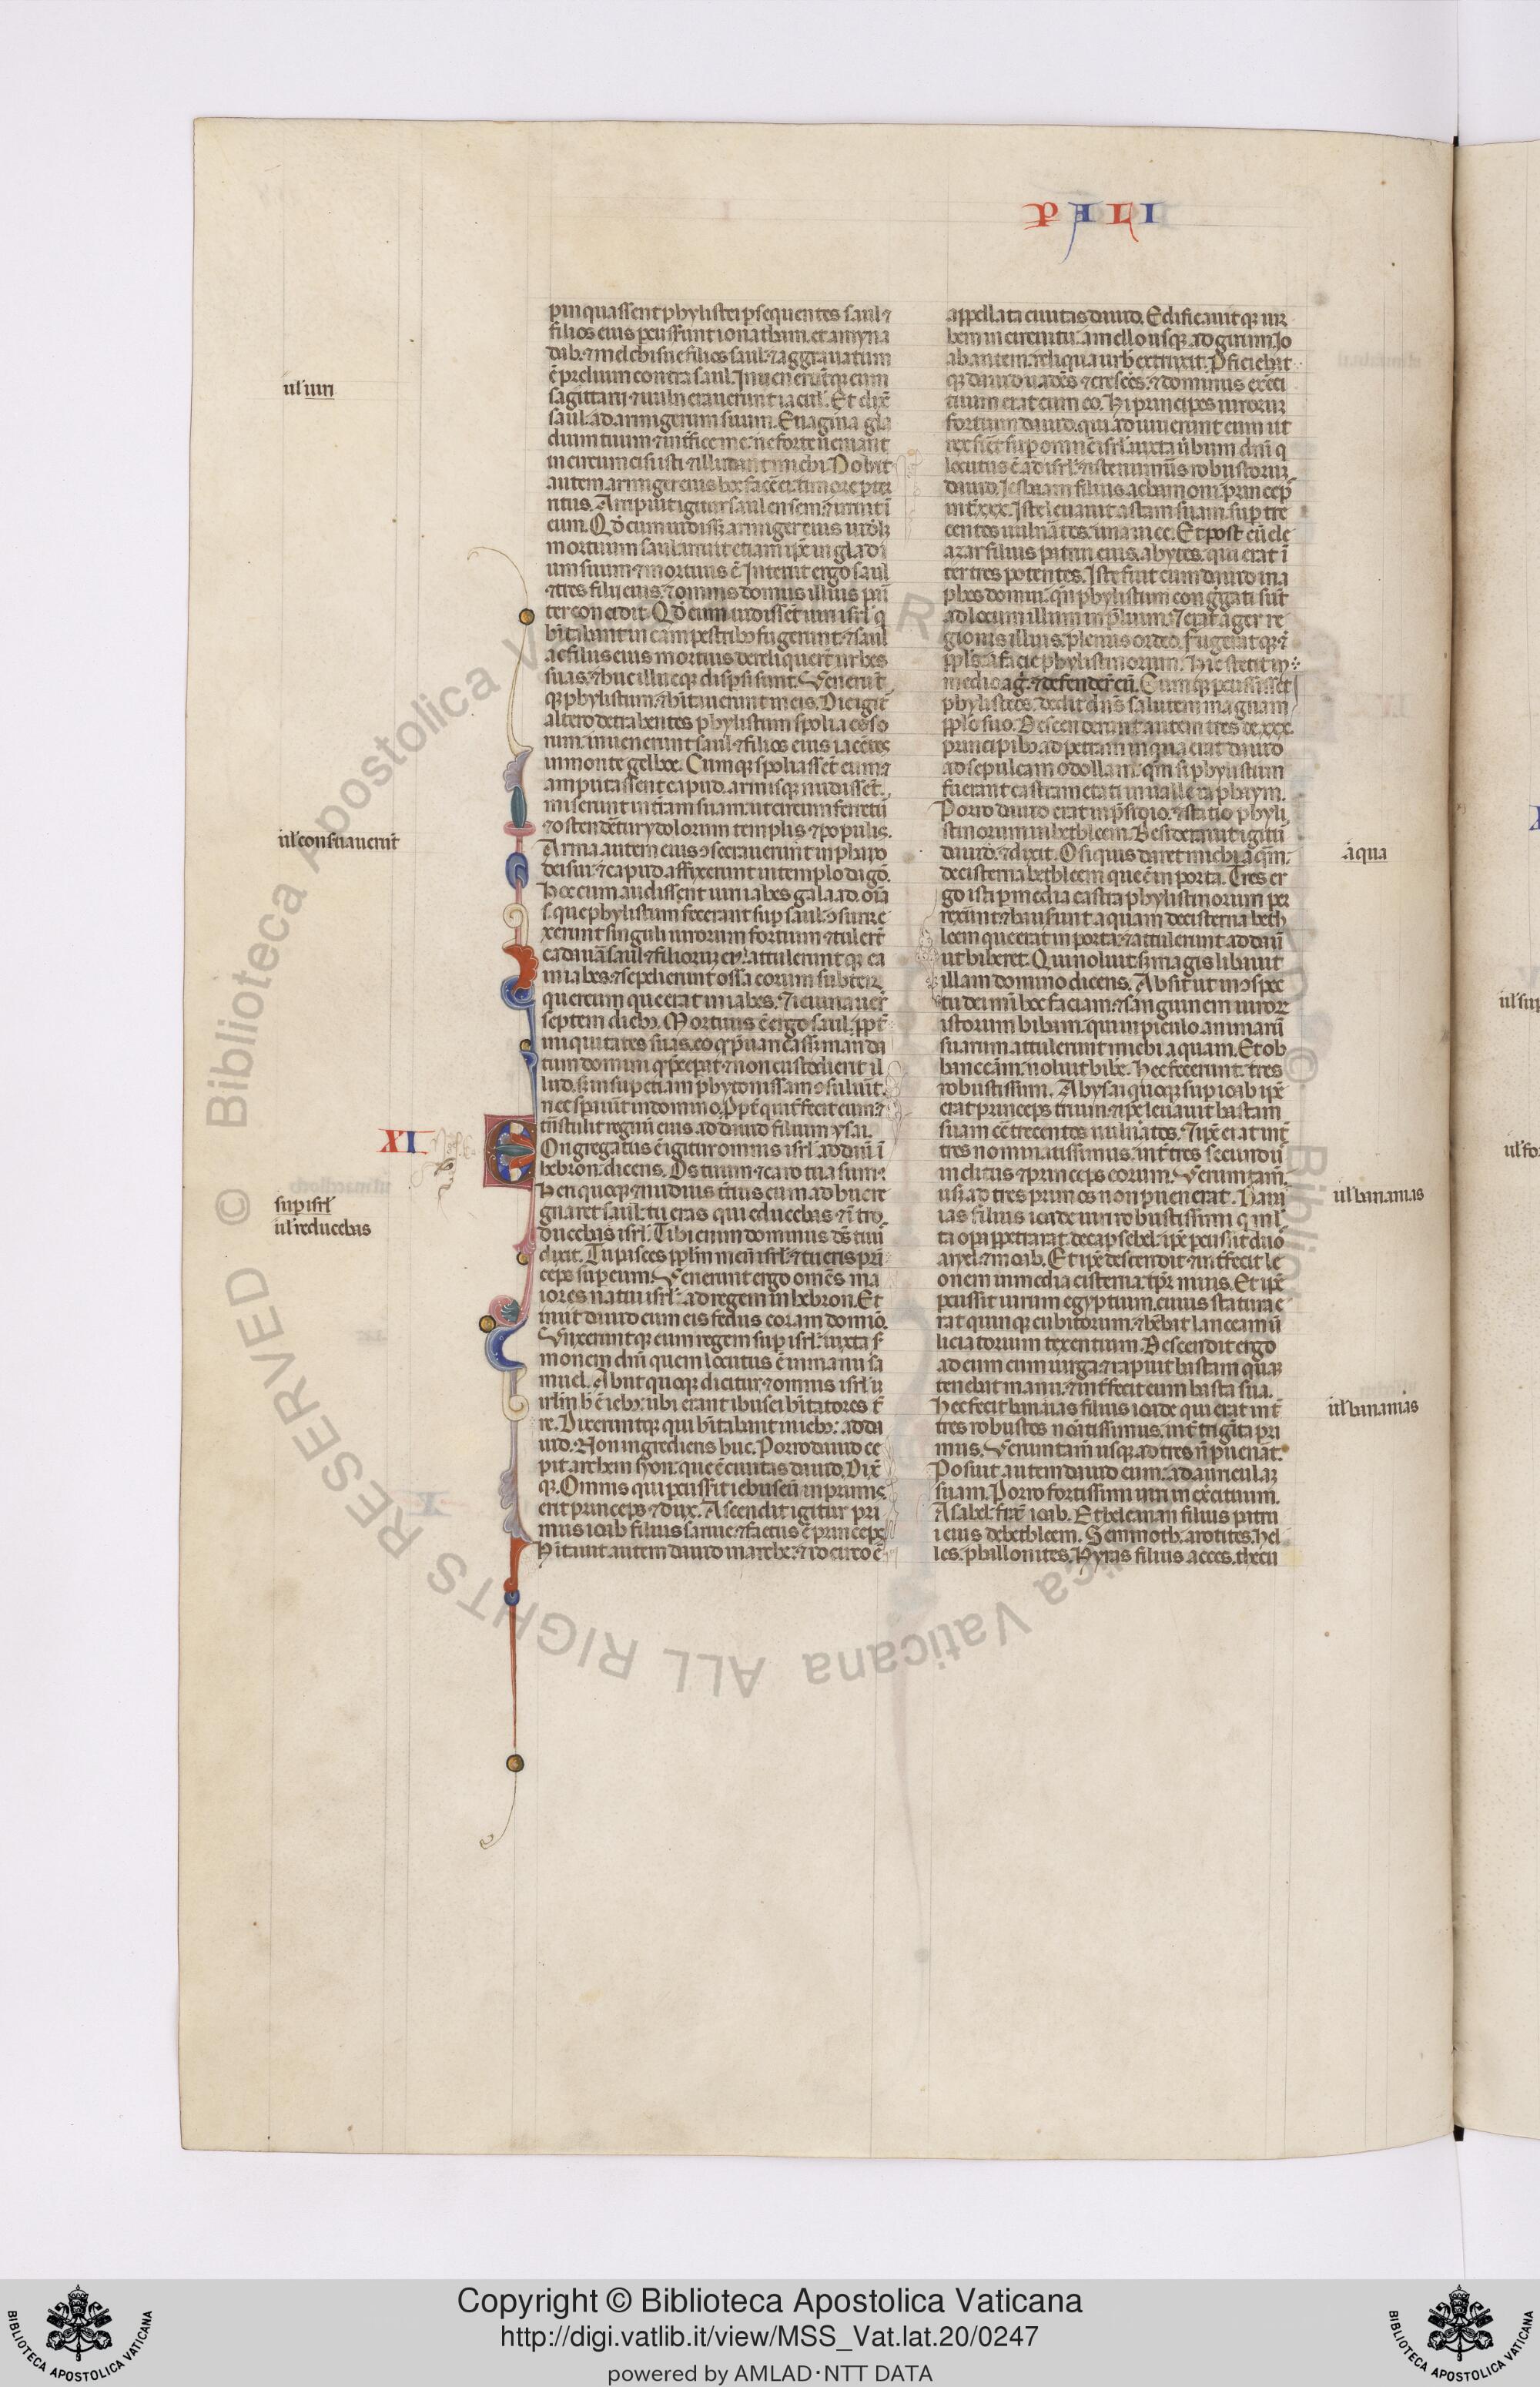 PALI
pinquassent phylistei psequentes saul ⁊
filios eius pcusserunt ionathan. et amyna
dab. ⁊ melchisue filios saul. ⁊ aggrauatum
ē prelium contra saul. Inuenerūtq; eum
sagittarij ⁊ uulnerauerunt iacul'. Et dix̄
ul' uiri
saul. ad armigerum suum. Euagina gla
dium tuum ⁊ int̄fice me: ne forte ueniant
incircumcisi isti ⁊ illudant michi. Noluit
autem armiger eius hoc facē ei. timore pter
ritus. Arripuit igitur saul ensem: ⁊ irruit ī
eum. Qd̄ cum uidiss; armiger eius uidel;
mortuum saul. irruit etiam ip̄e in gladi
um suum ⁊ mortuus ē. Interiit ergo saul
⁊ tres filij eius. ⁊ omnis domus illius pari
ter concidit. Qd̄ cum uidissēt uiri isrl' q
hītabant in campestrib; fugerunt. ⁊ saul
ac filiis eius mortuis dereliquer̄t urbes
suas. ⁊ huc illucq; disp̄si sunt. Venerūt
q; phylistiim. ⁊ hītauerunt in eis. Die igit̄
altero detrahentes phylistiim spolia ceso
rum. inuenerunt saul ⁊ filios eius iacētes
in monte gelboe. Cumq; spoliassēt eum ⁊
amputassent capud. armisq; nudissēt.
miserunt in tr̄am suam. ut circumferretū
⁊ ostendēt̄ ydolorum templis ⁊ populis.
ul' consecrauerūt
Arma autem eius ɔsecrauerunt in phano
dei sui. ⁊ capud. affixerunt in templo dagō.
Hoc cum audissent uiri iabes galaad. oīa
s. que phylistiim fecerant sup saul. ɔsurre
xerunt singuli uirorum fortium ⁊ tulerūt
cadauera saul ⁊ filiorum ei'. attuleruntq; ea
in iabes. ⁊ sepelierunt ossa eorum subter
quercum que erat in iabes. ⁊ ieiunauer̄
septem dieb;. Mortuus ē ergo saul. ppt̄
iniquitates suas. eo q p̄uaricassū manda
tum domini q p̄cepit ⁊ non custodierit il
lud. sed insup etiam phytonissam ɔsuluit.
nec sperauit in domino. ppt̄ quod īt̄fecit eum ⁊
tn̄stulit regnū eius ad dauid filium ysai.
XI
Congregatus ē igitur omnis isrl' ad dauid ī
hebron. dicens. Os tuum ⁊ caro tua sum'.
Heri quoq; ⁊ nudius tertius cum adhuc re
sup isrl'
gnaret saul. tu eras qui educebas ⁊ īntro
ul' reducebas
ducebas isrl'. Tibi enim dominus ds̄ tuus
dixit. Tu pasces pplm meū isrl'. ⁊ tu eris prin
ceps sup eum. Venerunt ergo omēs ma
iores natu isrl'. ad regem in hebron. Et
iniit dauid cum eis fedus coram domīo.
Vnxeruntq; eum regem sup isrl'. iuxta s̄
monem dn̄i quem locutus ē in manu sa
muel. Abiit quoq; dauid ⁊ omnis isrl' ī
irlm. h' ē iebus. ubi erant iebusei hītatores t̄
re. Dixeruntq; qui hītabant in iebus. ad da
uid. Non ingredieris huc. Porro dauid ce
pit archem syon. que ē ciuitas dauid. Dix̄
q;. Omnis qui pcusserit iebuseū in primis.
erit princeps ⁊ dux. Ascendit igitur pri
mus ioab filius saruie. ⁊ factus ē princeps.
Hītauit autem dauid in arche. ⁊ idcirco ē
appellata ciuitas dauid. Edificauitq; ur
bem in circuitu. a mello usq; ad girum. Io
ab autem. reliqua urb' extruxit. Pficiebat
q; dauid uadēs ⁊ crescēs. ⁊ dominus exerci
tuum erat cum eo. Hi principes uirorum
fortium dauid. qui adiuuerunt eum ut
rex fieret sup omnē isrl'. iuxta ūbum dn̄i q
locutus ē ad isrl'. ⁊ iste numūs robustorum
dauid. Iesbaam filius achamoni. princeps
int̄ xxx. Iste leuauit astam suam. sup tre
centos uulnātos. una uice. Et post eū ele
azar filius patrui eius. ahytes. qui erat ī
ter tres potentes. Iste fuit cum dauid in a
phes domim. qn̄ phylistiim cong̅gati sunt
ad locum illum in p̄lium. ⁊ erat ager re
gionis illius. plenus ordeo. Fugeratq;
ppls a facie phylistinorum. Hic stetit in
medio ag̅i. ⁊ defender̄ eū. Cumq; pcussisset
phylisteos. dedit dn̄s salutem magnam
pplo suo. Descenderunt autem tres de xxx.
principib; ad petram in qua erat dauid
ad speluncam odollam. qn̄ phylistiim
fuerant castrametati in ualle raphaym.
Porro dauid erat in p̄sidio. ⁊ statio phyli
stinorum in bethleem. Desiderauit igitur
aqua
dauid. ⁊ dixit. O siquis daret michi aquam.
de cisterna bethleem que ē in porta. Tres er
go isti p media castra phylistinorum per
rexerūt. ⁊ hauserunt aquam de cisterna beth
leem que erat in porta. ⁊ attulerunt ad dauid
ut biberet. Qui noluit. s; magis libauit
illam domino dicens. Absit ut in ɔspec
tu dei mei hoc faciam. ⁊ sanguinem uiror
istorum bibam. qui in piculo animarū
suarum attulerunt michi aquam. Et ob
hanc cām. noluit bibe. Hec fecerunt. tres
robustissimi. Abysai quoq; frater ioab ip̄e
erat princeps trium. ⁊ ip̄e leuauit hastam
suam cōtrecentos uulnātos. ⁊ ip̄e erat int̄
tres nominatissimus. int̄ tres secundū
inclitus ⁊ princeps eorum. Verumtam̄
ul' bananias
usq; ad tres primos non puenerat. Bana
ias filius ioiade uiri robustissimi q mul
ta opa ppetrarat. de capsehel. ip̄e pcussit duo
ariel. moab. Et ip̄e descendit. ⁊ int̄fecit le
onem in media cisterna. tp̄r niuis. Et ip̄e
pcussit uirum egyptium. cuius statura e
rat quinq; cubitorum. ⁊ hēbat lanceam ū
liciatorium texentium. Descendit ergo
ad eum cum uirga. ⁊ rapuit hastam quam
tenebat manu. ⁊ int̄fecit eum hasta sua.
ul' bananias
Hec fecit banaias filius ioiade qui erat int̄
tres robustos noītissimus. int̄ triginta pri
mus. Verumtam̄ usq; ad tres n̄ puenāt.
Posuit autem dauid eum. ad auriculam
suam. Porro fortissimi uiri in exercitum.
Asahel. frat̄ ioab. Et heleanan filius patru
i eius de bethleem. Semmoth. arorites. hel
les. phallonites. Hyras filius acces. thecu
ul' sup
Copyright © Biblioteca Apostolica Vaticana
http://digi.vatlib.it/view/MSS_Vat.lat.20/0247
powered by AMLAD·NTT DATA
BIBLIOTECA APOSTOLICA VATICANA
BIBLIOTECA APOSTOLICA VATICANA
© Biblioteca Apostolica Vaticana ALL RIGHTS RESERVED